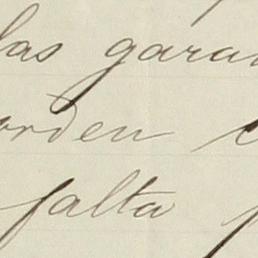 las garan
orden c
falta